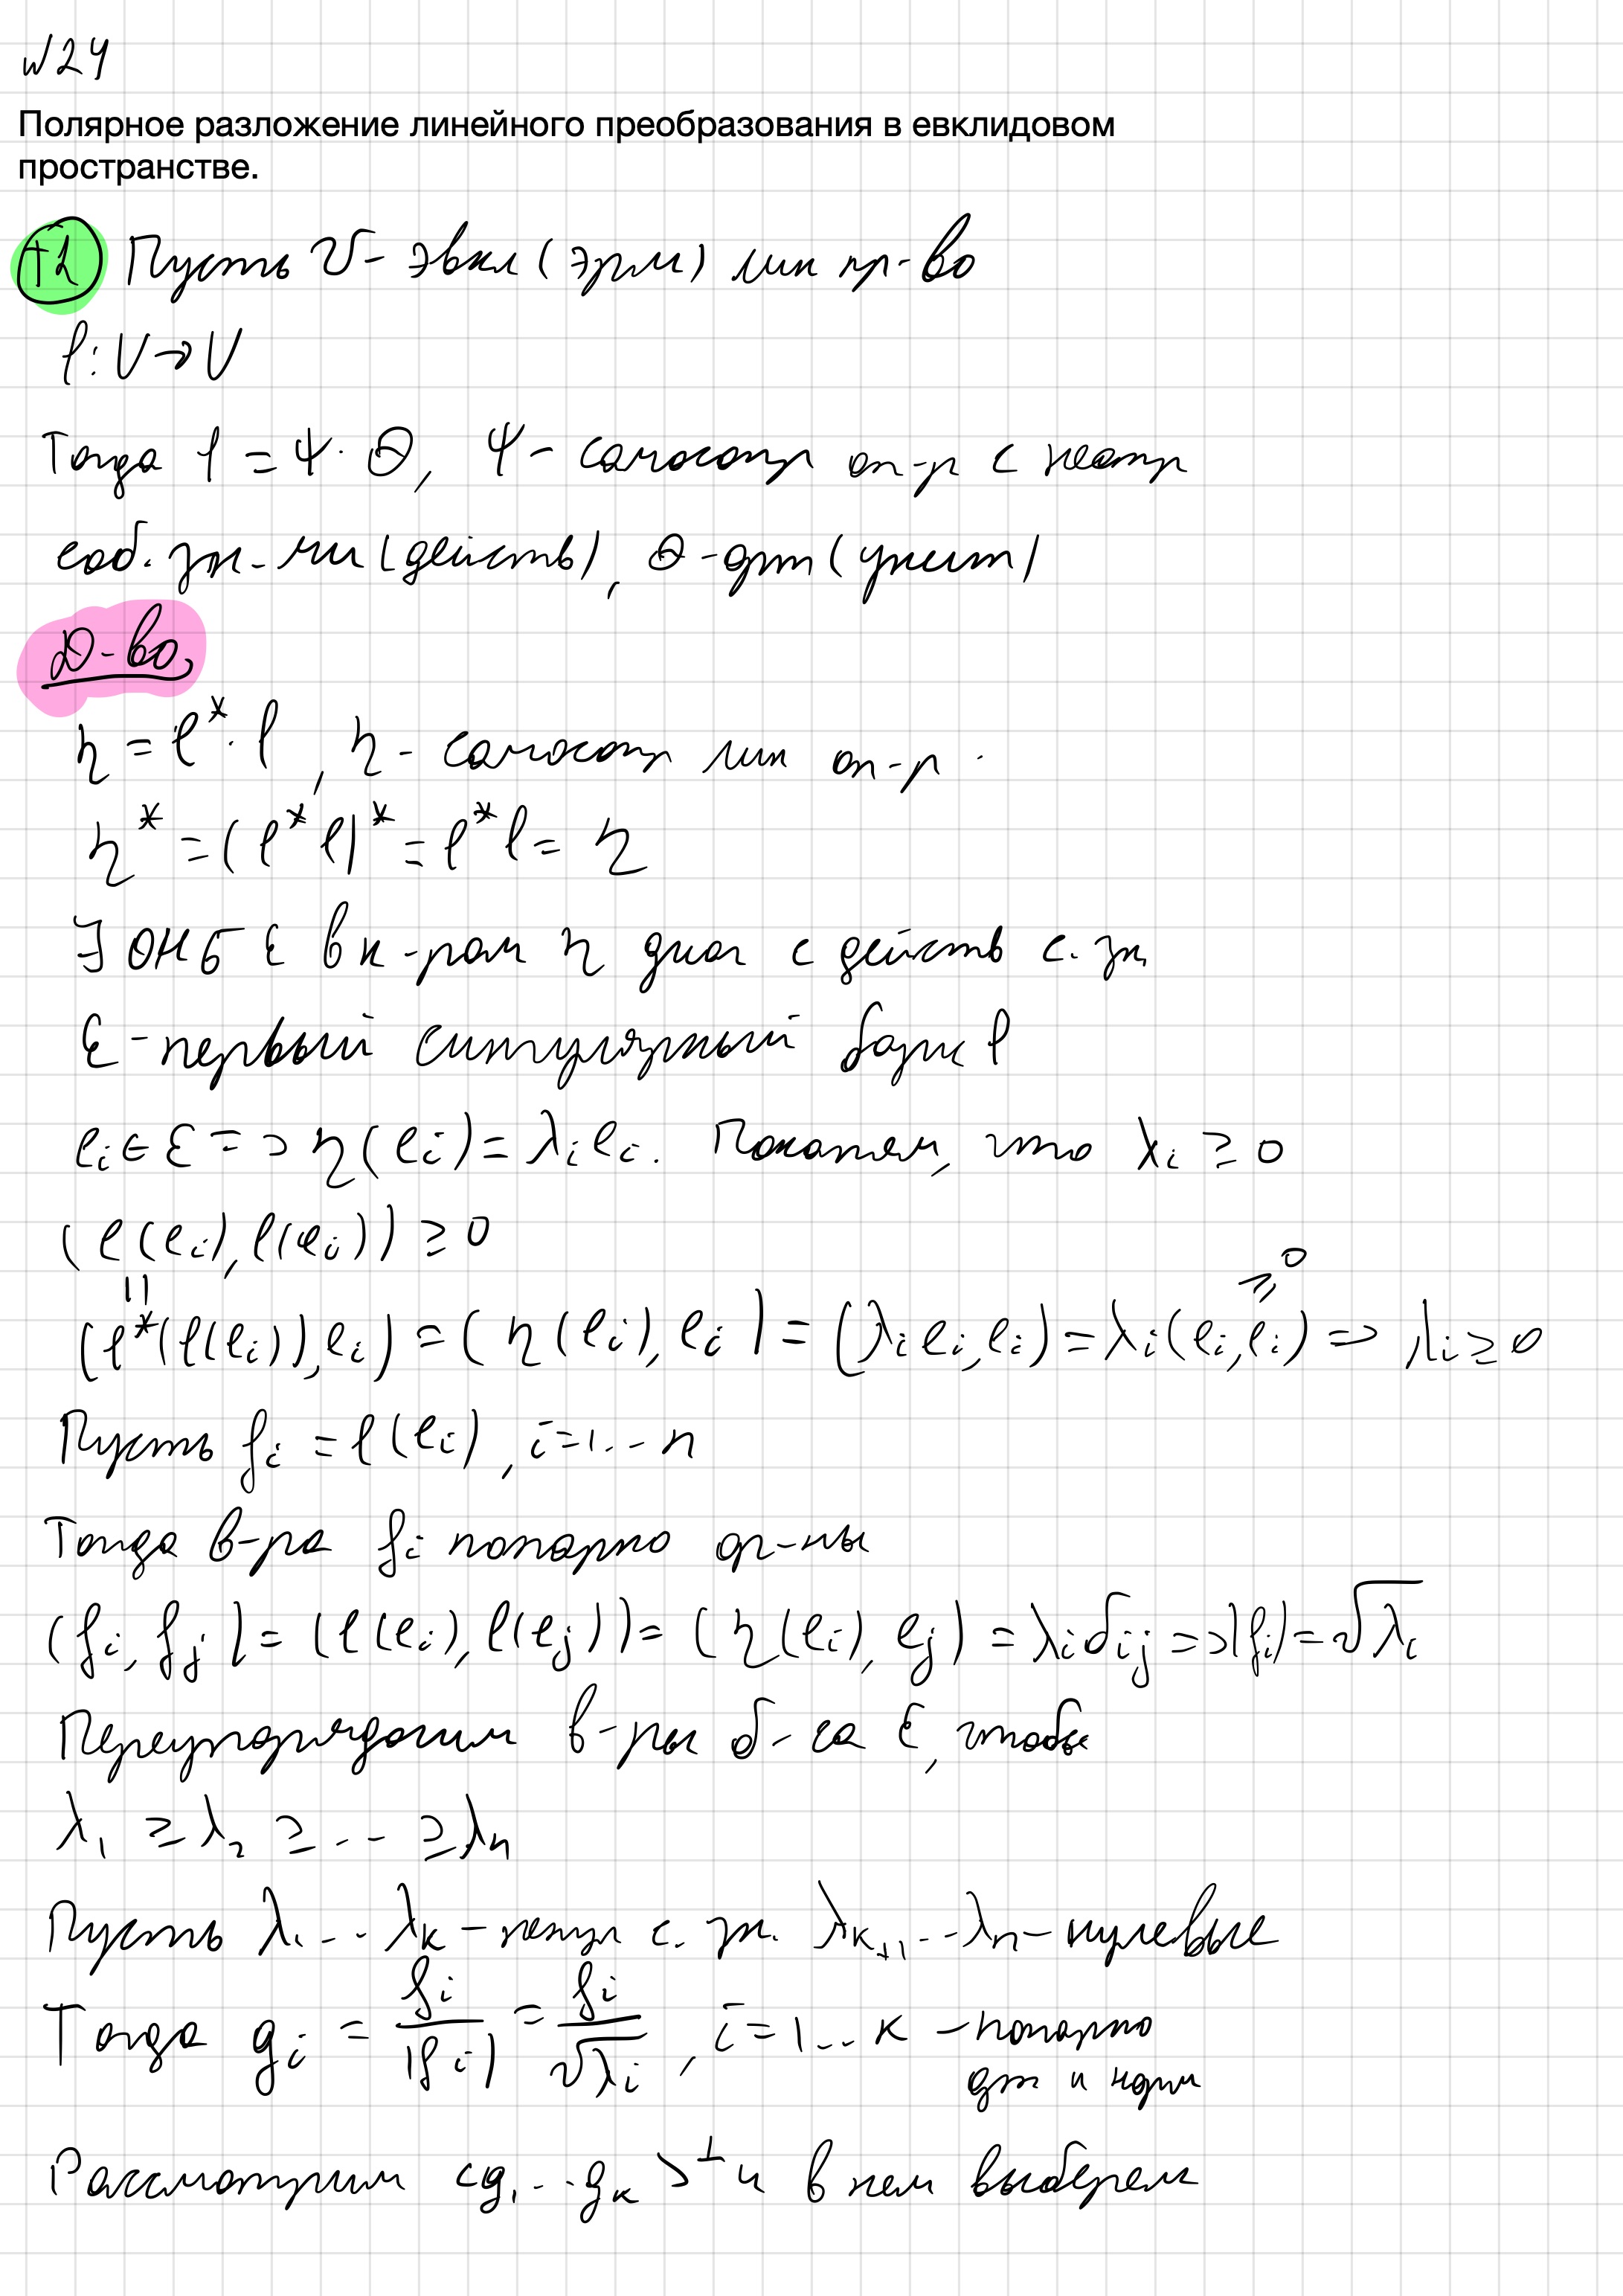 №24
Полярное разложение линейного преобразования в евклидовом
пространстве.
T1 Пусть V - эвкл (эрм) лин пр-во
φ: V → V
Тогда φ = Ψ · Θ, Ψ - самосопр оп-р с неотр
соб. зн-ми (действ), Θ - орт (унит)
Д-во,
η = φ* · φ, η - самосопр лин оп-р.
η* = (φ* φ)* = φ* φ = η
∃ ОНБ ℰ в к-ром η диаг с действ с. зн,
ℰ - первый сингулярный базис φ
e_i ∈ ℰ => η(e_i) = λ_i e_i. Покажем, что λ_i ≥ 0
(φ(e_i), φ(e_i)) ≥ 0
|| ≥ 0
(φ*(φ(e_i)), e_i) = (η(e_i), e_i) = (λ_i e_i, e_i) = λ_i(e_i, e_i) => λ_i ≥ 0
Пусть f_i = φ(e_i), i = 1...n
Тогда в-ра f_i попарно ор-ны
(f_i, f_j) = (φ(e_i), φ(e_j)) = (η(e_i), e_j) = λ_i δ_ij => |f_i| = √λ_i
Переупорядочим в-ры б-са ℰ, чтобы
λ_1 ≥ λ_2 ≥ ... ≥ λ_n
Пусть λ_1 ... λ_k - ненул с. зн. λ_{k+1} ... λ_n - нулевые
Тогда g_i = f_i / |f_i| = f_i / √λ_i, i = 1...k - попарно
орт и норм
Рассмотрим <g_1 ... g_k>^⊥ и в нем выберем